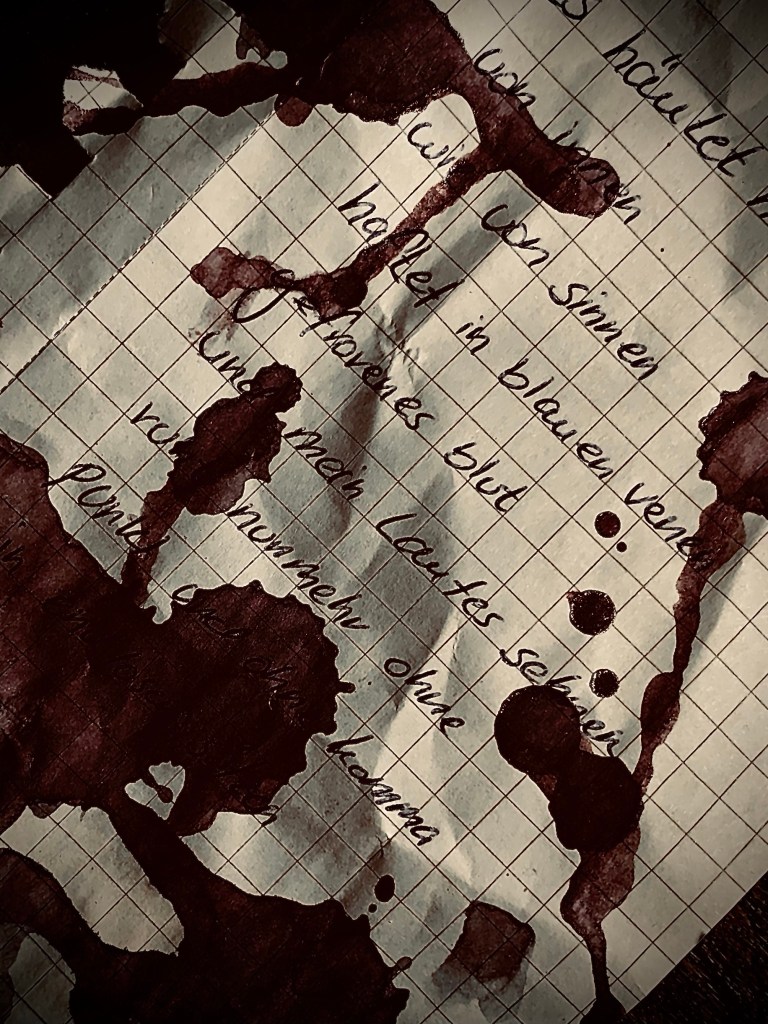 häutet
von innen
von sinnen
haftet in blauen venen
gefrorenes blut
und mein lautes sehnen
nunmehr ohne
punkt und ohne komma
in